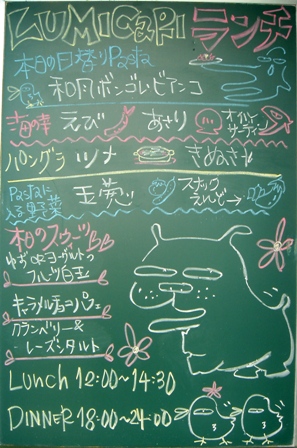 ZUMICAPI ランチ
本日の日替りPasta
和風ボンゴレビアンコ
海の幸 えび あさり オイルサーディン
パングラ ツナ きぬさや
Pastaに入る野菜 玉葱 スナックえんどう
本日のスウィーツ
ゆず or ヨーグルトの
フルーツ白玉
キャラメルチョコパフェ
クランベリー&
レーズンタルト
Lunch 12:00~14:30
DINNER 18:00~24:00